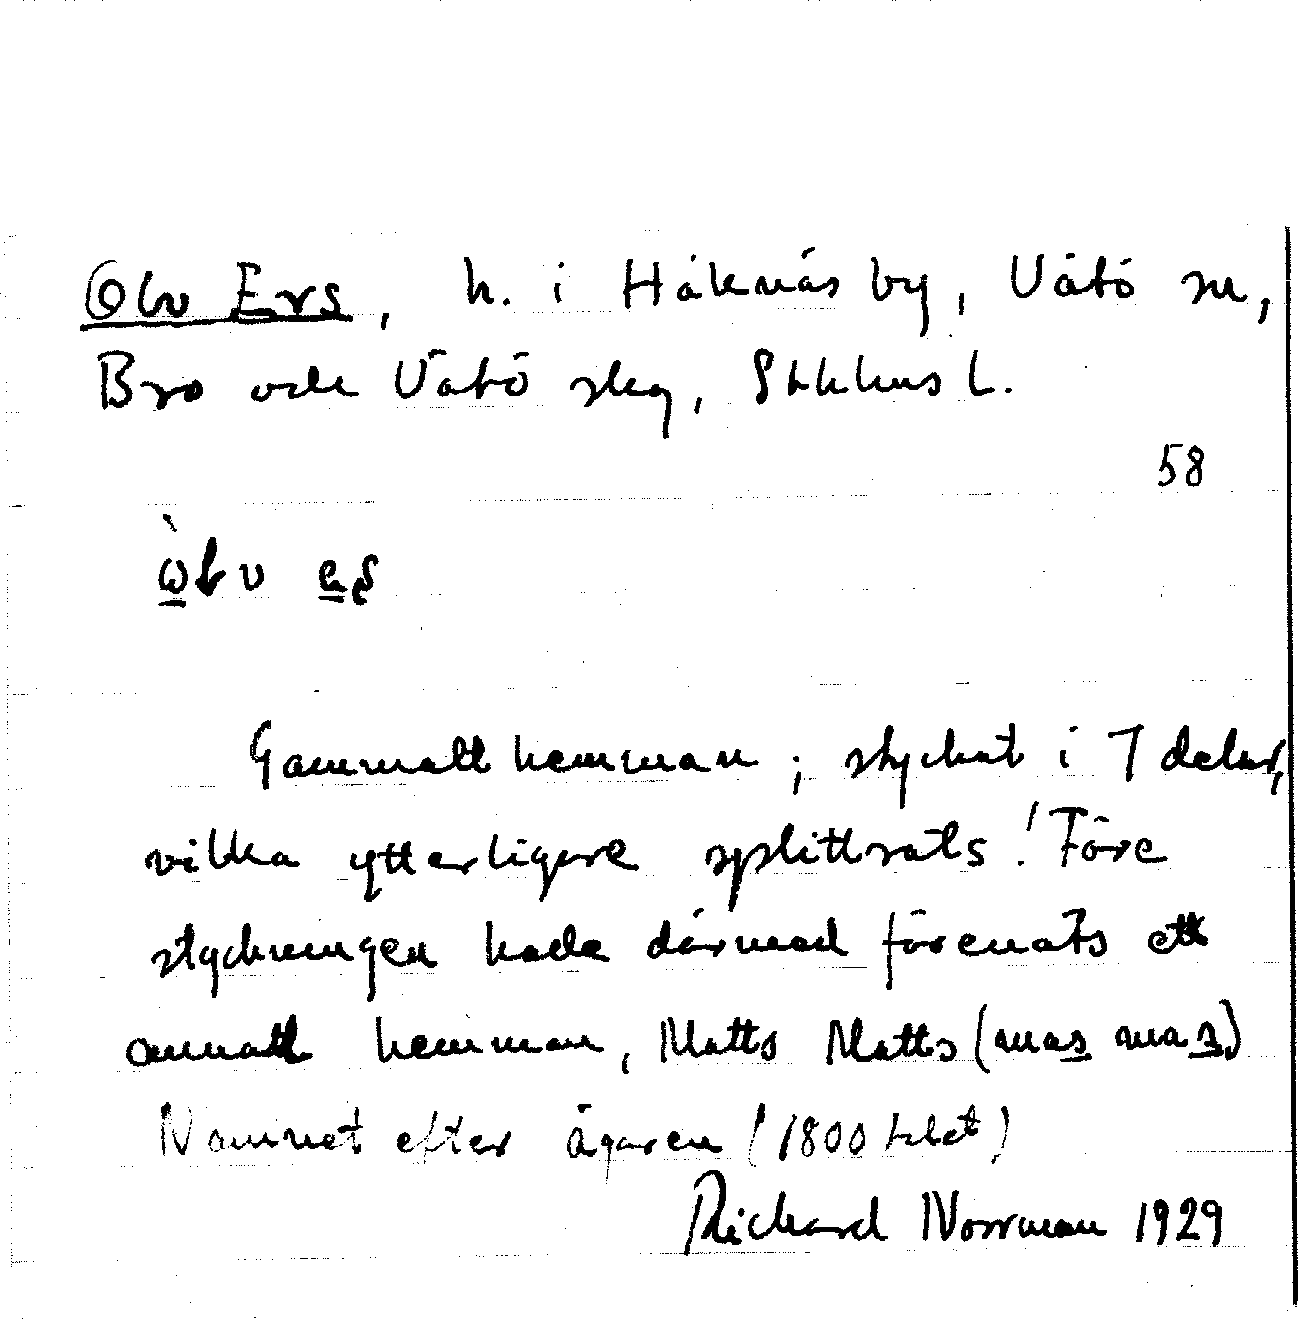 Olv Ers, h. i Håknäs by, Vätö sn,
Bro och Vätö skg, Sthlms l.
58
Gammalt hemman; styckat i 7 delar,
vilka ytterligare splittrats! Före
styckningen hade därmed förenats ett
annat hemman, Matts Matts (mas mas)
Namnet efter ägaren (1800 talet)
Richard Norrman 1929